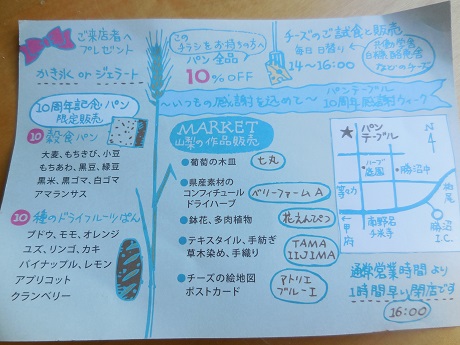 ご来店者へ
プレゼント
かき氷 or ジェラート
この
チラシをお持ちの方へ
パン全品
10% OFF
チーズのご試食と販売
毎日日替り
14〜16:00
共働学舎
白糠酪恵舎
などのチーズ
〜いつもの感謝を込めて〜
パンテーブル
10周年感謝ウィーク
10周年記念パン
限定販売
10 穀食パン
大麦、もちきび、小豆
もちあわ、黒豆、緑豆
黒米、黒ゴマ、白ゴマ
アマランサス
10 種のドライフルーツぱん
ブドウ、モモ、オレンジ
ユズ、リンゴ、カキ
パイナップル、レモン
アプリコット
クランベリー
MARKET
山梨の作品販売
●葡萄の木皿 七丸
●県産素材の
コンフィチュール
ドライハーブ
ベリーファームA
●鉢花、多肉植物 花えんぴつ
●テキスタイル、手紡ぎ
草木染め、手織り
TAMA
IIJIMA
●チーズの絵地図
ポストカード
アトリエ
ブルーエ
★パン
テーブル
N
4
ハーブ
庭園
勝沼中
等々力
柏尾
←甲府
南野呂
千米寺
勝沼
I.C.
通常営業時間より
1時間早い閉店です
16:00